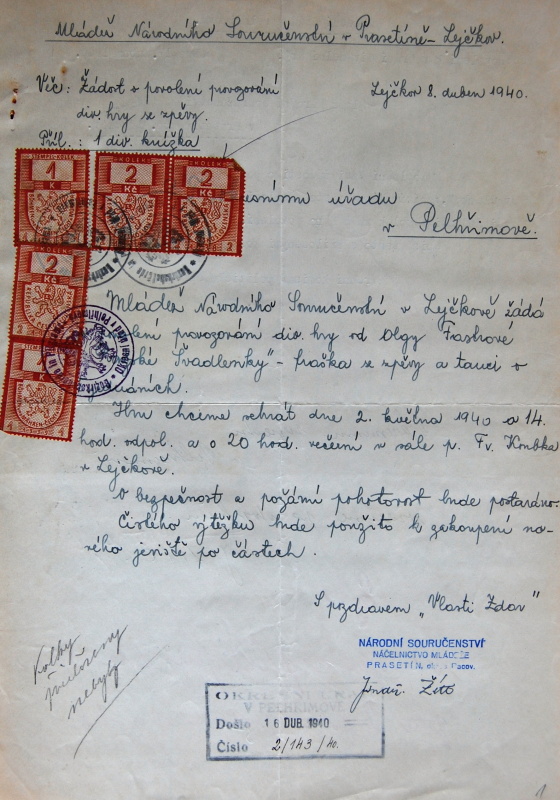 Mládež Národního Souručenství v Prasetíně-Lejčkov.
Věc: Žádost o povolení provozování
div. hry se zpěvy.
Lejčkov 8. duben 1940.
Příl.: 1 div. knížka
STEMPEL KOLEK
1
K
KOLEK
2
Kč
KOLEK
2
Kč
úřadu
v Pelhřimově.
2
Kč
Mládež Národního Souručenství v Lejčkově žádá
provozování div. hry od Olgy
Švadlenky" - fraška se zpěvy a tanci o
Hru chceme sehrát dne 2. května 1940 o 14.
hod. odpol. a o 20 hod. večerní v sále p. Fr.
v Lejčkově.
O bezpečnost a požární pohotovost bude postaráno.
Čistého výtěžku bude použito k zakoupení no-
vého jeviště po částech.
S pozdravem „Vlasti Zdar"
NÁRODNÍ SOURUČENSTVÍ
NÁČELNICTVO MLÁDEŽE
PRASETÍN, Pacov.
Jindř. Žito
Kolky
přiloženy
nebyly
V PELHŘIMOVĚ
Došlo 16 DUB. 1940
Číslo 2/143/40.
1